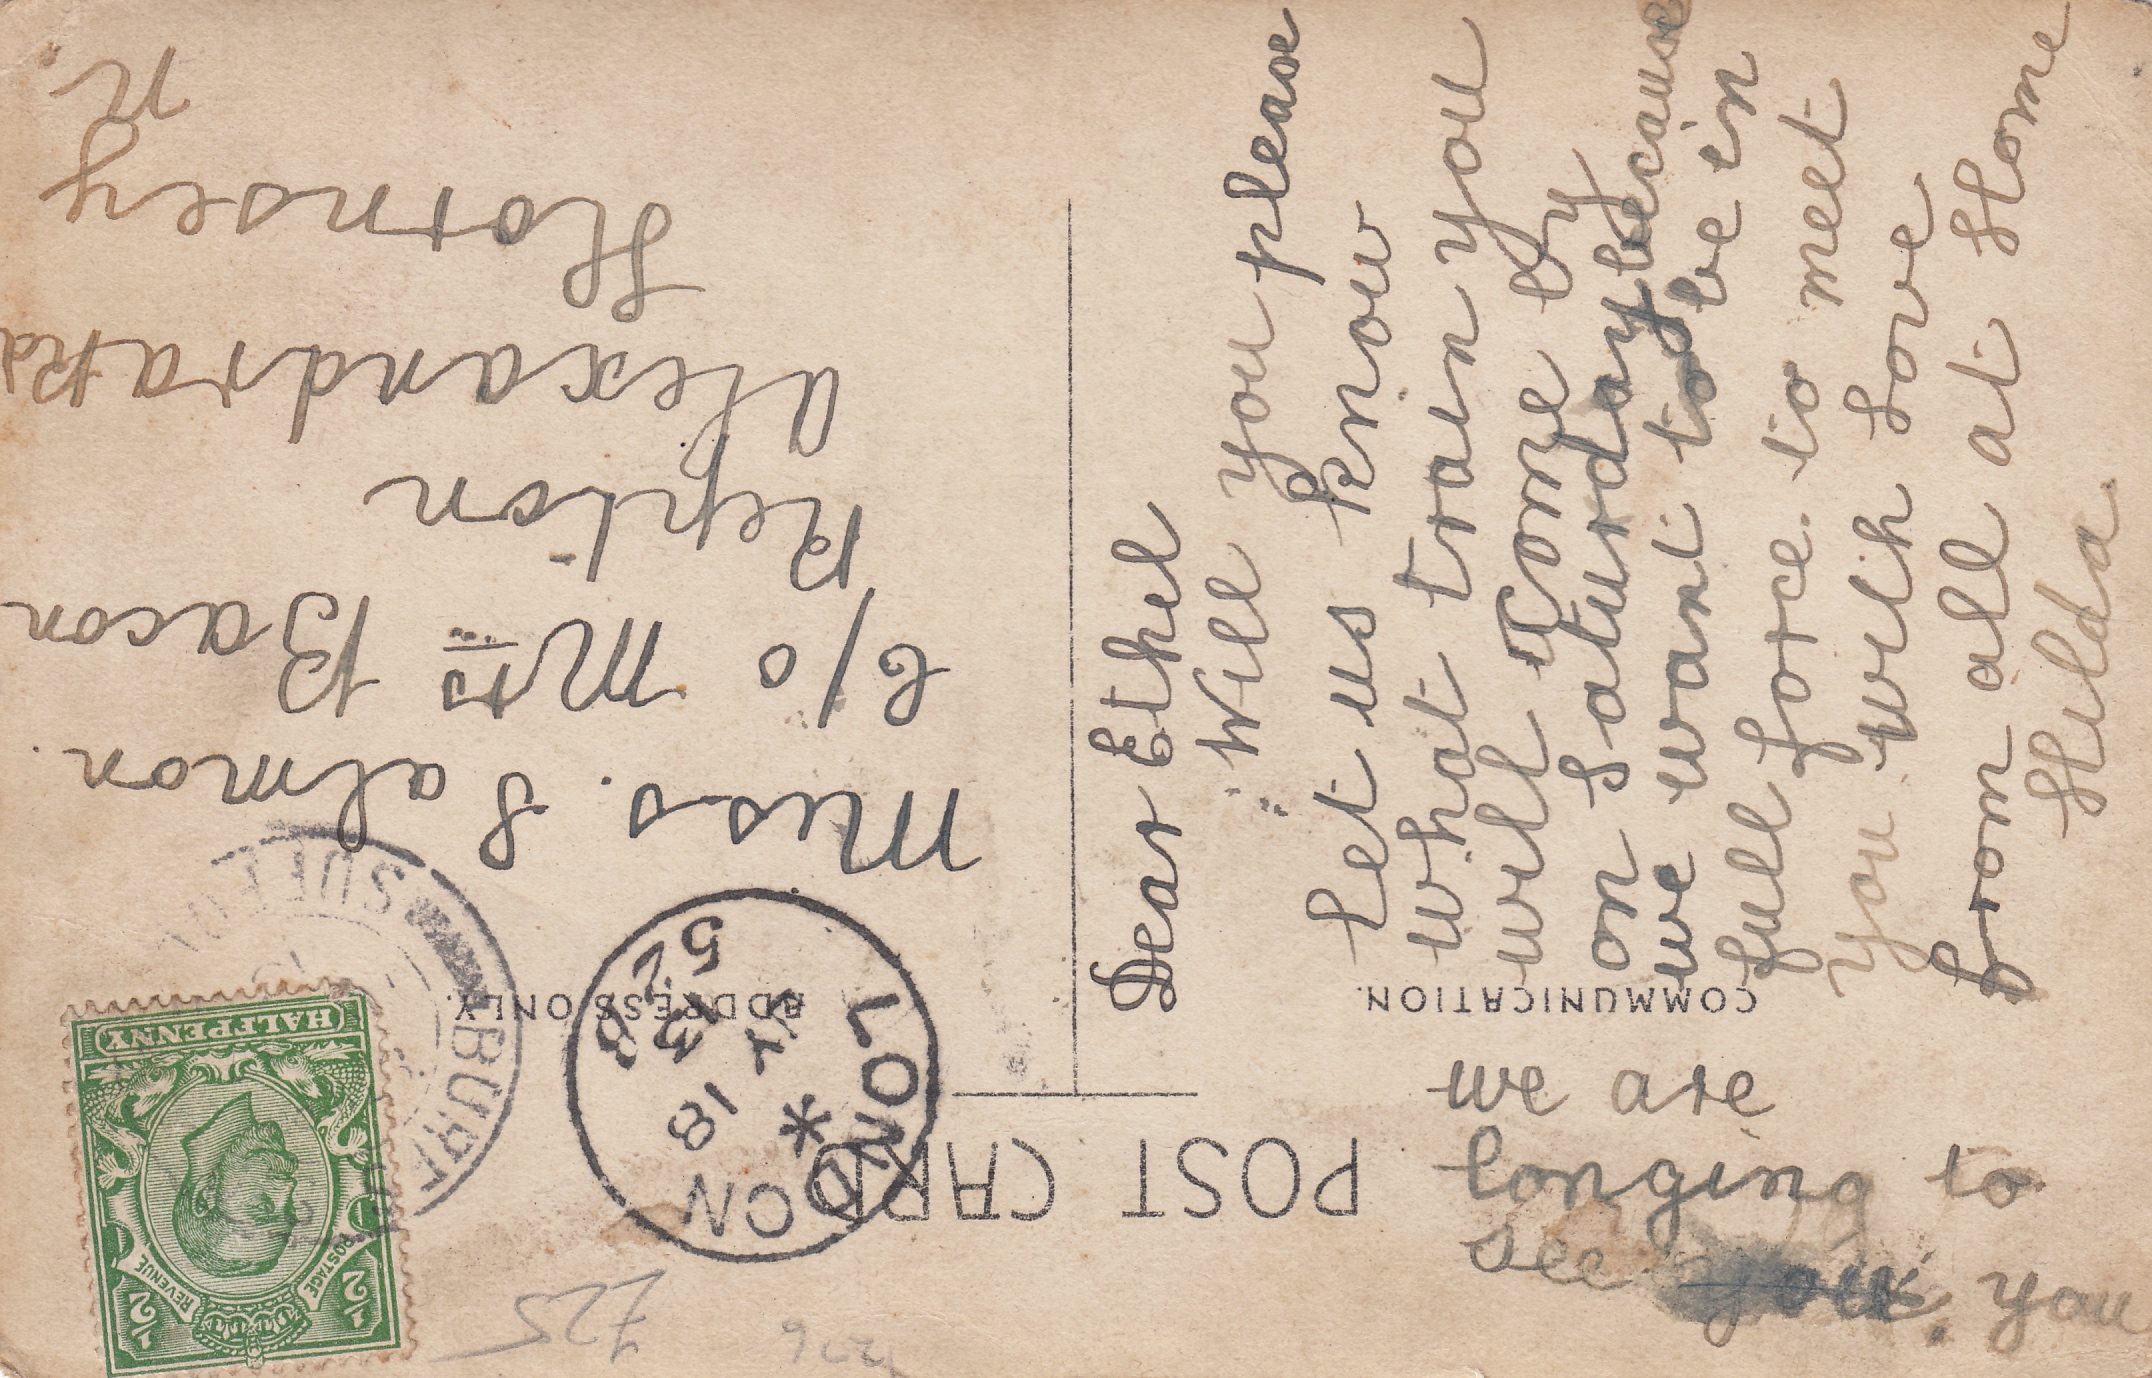 POST CARD
COMMUNICATION.
ADDRESS ONLY.
HALFPENNY
POSTAGE
REVENUE
1/2
1/2
LONDON
18
13
SUDBURY
SUFFOLK
£25
Dear Ethel
Will you please
let us know
what train you
will come by
on Saturday because
we want to be in
full force to meet
you with love
from all at Home
Hilda
we are
longing to
see you. you
Miss. Salmon.
c/o Mrs Bacon
Repton
Alexandra Rd
Hornsey
N.